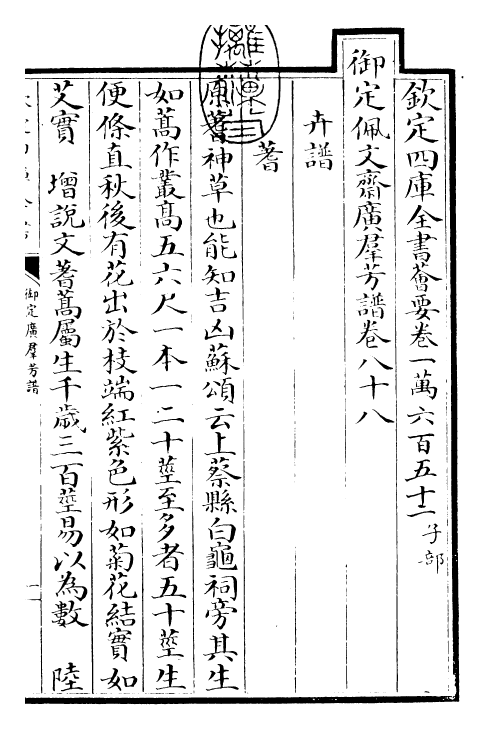 欽定四庫全書薈要卷一萬六百五十二 子部
御定佩文齋廣羣芳譜卷八十八
卉譜
蓍
原蓍神草也能知吉凶蘇頌云上蔡縣白龜祠旁其生
如蒿作叢高五六尺一本一二十莖至多者五十莖生
便條直秋後有花出於枝端紅紫色形如菊花結實如
艾實 增說文蓍蒿屬生千歲三百莖易以為數 陸
御定廣羣芳譜
一